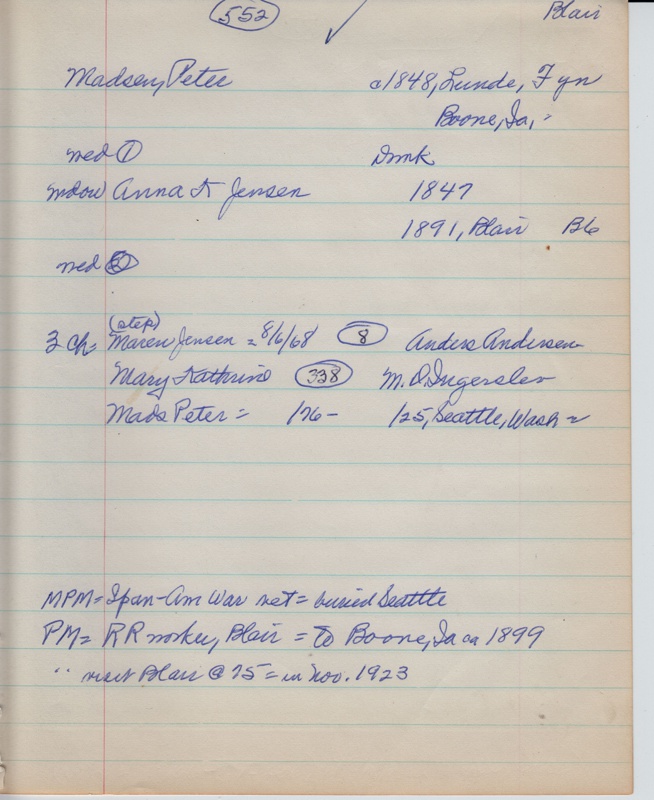 552 Blair
Madsen, Peter c1848, Lunde, Fyn
Boone, Ia, =
med ① Dmk
Anna K Jensen 1847
1891, Blair Bb
med ②
(step)
3 ch = Maren Jensen = 8/6/68 8 Anders Andersen
Mary Kathrine 338 M. D. Ingerslev
Mads Peter = /76 - /25, Seattle, Wash =
MPM = Span-Am War vet = buried Seattle
PM = RR worker, Blair = to Boone, Ia ca 1899
" visit Blair @ 75 = in Nov. 1923